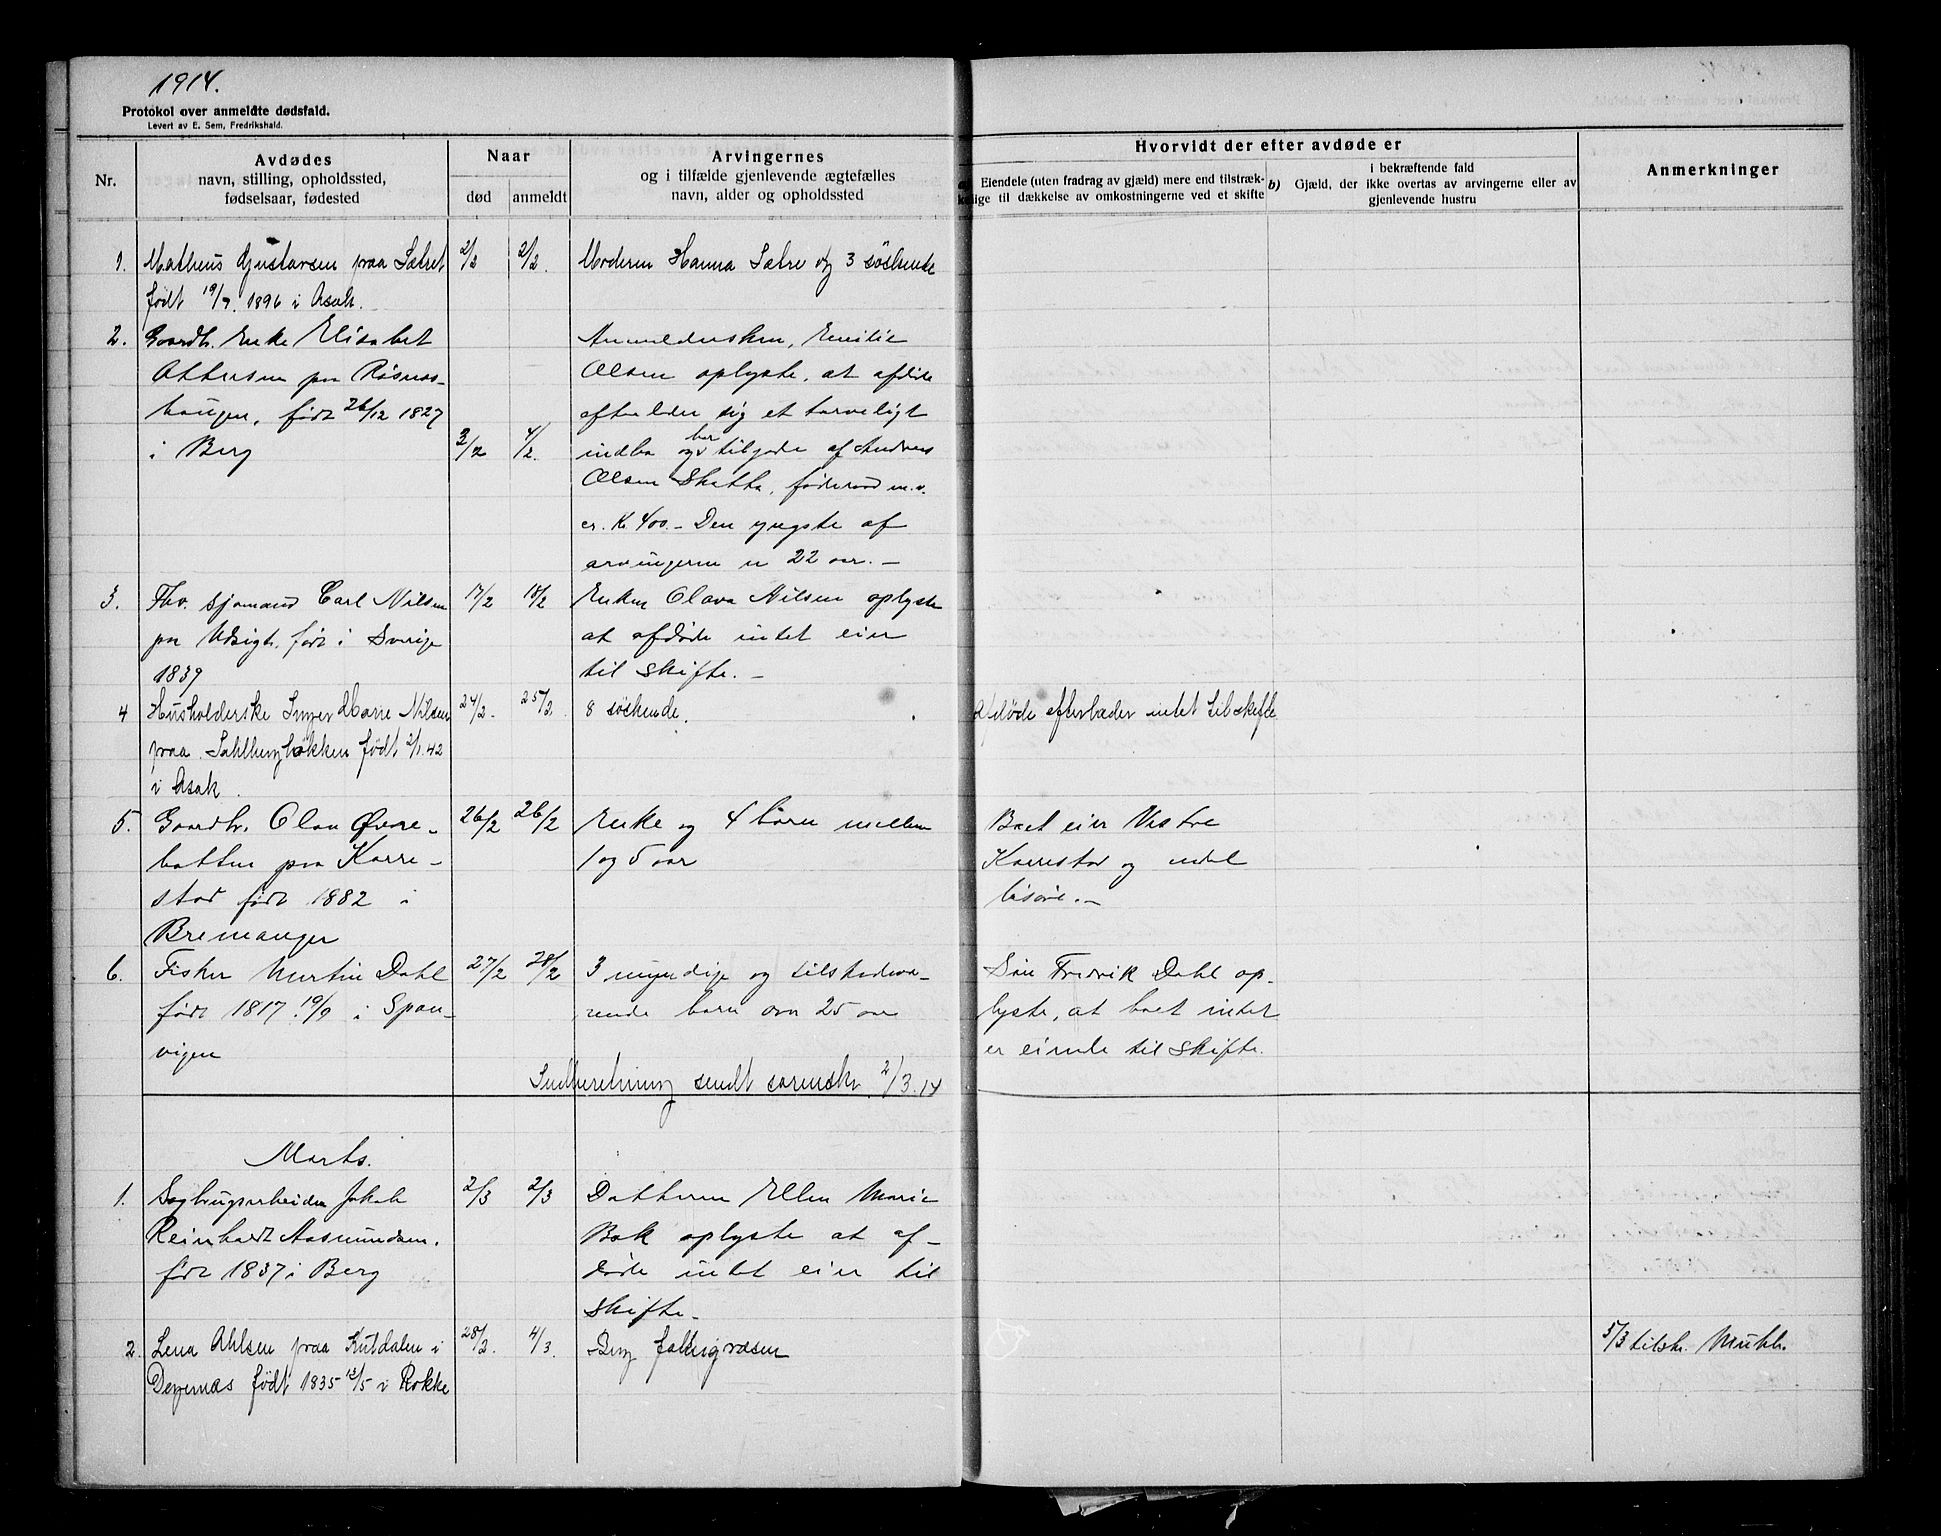 1914.
Protokol over anmeldte dødsfald.
Levert av E. Sem, Fredrikshald.
Nr.
Avdødes
navn, stilling, opholdssted,
fødselsaar, fødested
Naar
død
anmeldt
Arvingernes
og i tilfælde gjenlevende ægtefælles
navn, alder og opholdssted
Hvorvidt der efter avdøde er
Eiendele (uten fradrag av gjæld) mere end tilstræk-
lige til dækkelse av omkostningerne ved et skifte
b)
i bekræftende fald
Gjæld, der ikke overtas av arvingerne eller av
gjenlevende hustru
Anmerkninger
1. Matheus Gustavsen paa Sætret 2/2 2/2. Moderen Hanna Sætre og 3 søskende
født 19/9. 1896 i Asak.
2. Gaardbr. Enke Elisabet
Attersen paa Røsnes-
haugen, født 26/12 1827
i Berg 3/2 4/2.
Anmeldersken, Emilie
Olsen oplyste, at afdøde
efterlader sig et tarveligt
indbo og har tilgode af Andreas
Olsen Skatta, føderaad m.v.
ca. Kr 400.- Den yngste af
arvingerne er 22 aar. -
3. Fhv. sjømand Carl Nilsen 17/2 18/2 Enken Olava Nilsen oplyste
paa Udsigt. født i Sverige at afdøde intet eier
1839 til skifte. -
4 Husholderske Inger Marie Nilsen 24/2. 25/2. 8 søskende. Afdøde efterlader intet til skifte
paa Sahlbergløkken født 2/1.42
i Asak.
5. Gaardbr. Olav Øvre- 26/2 26/2 Enke og 4 børn mellem Boet eier Vestre
botten paa Karre- 1 og 5 aar Karrestad og endel
stad født 1882 i løsøre. -
Bremanger
6. Fisker Martin Dahl 27/2 28/2 3 myndige og tilstedevæ- Søn Fredrik Dahl op-
født 1817 19/9 i Spon- rende børn over 25 aar lyste, at boet intet
vigen er eiende til skifte.
Indberetning sendt sorenskr. 2/3.14
Marts.
1. Sagbrugsarbeider Jakob 2/3 2/3 Datteren Ellen Marie
Reinholdt Aasmundsen. Bok oplyste at af-
født 1837 i Berg døde intet eier til
skifte. -
2. Lena Ahlsen paa Kutdalen i 28/2. 4/3. Berg fattigvæsen 5/3 tilskr.
Degernæs født 1835 12/5 i Rokke